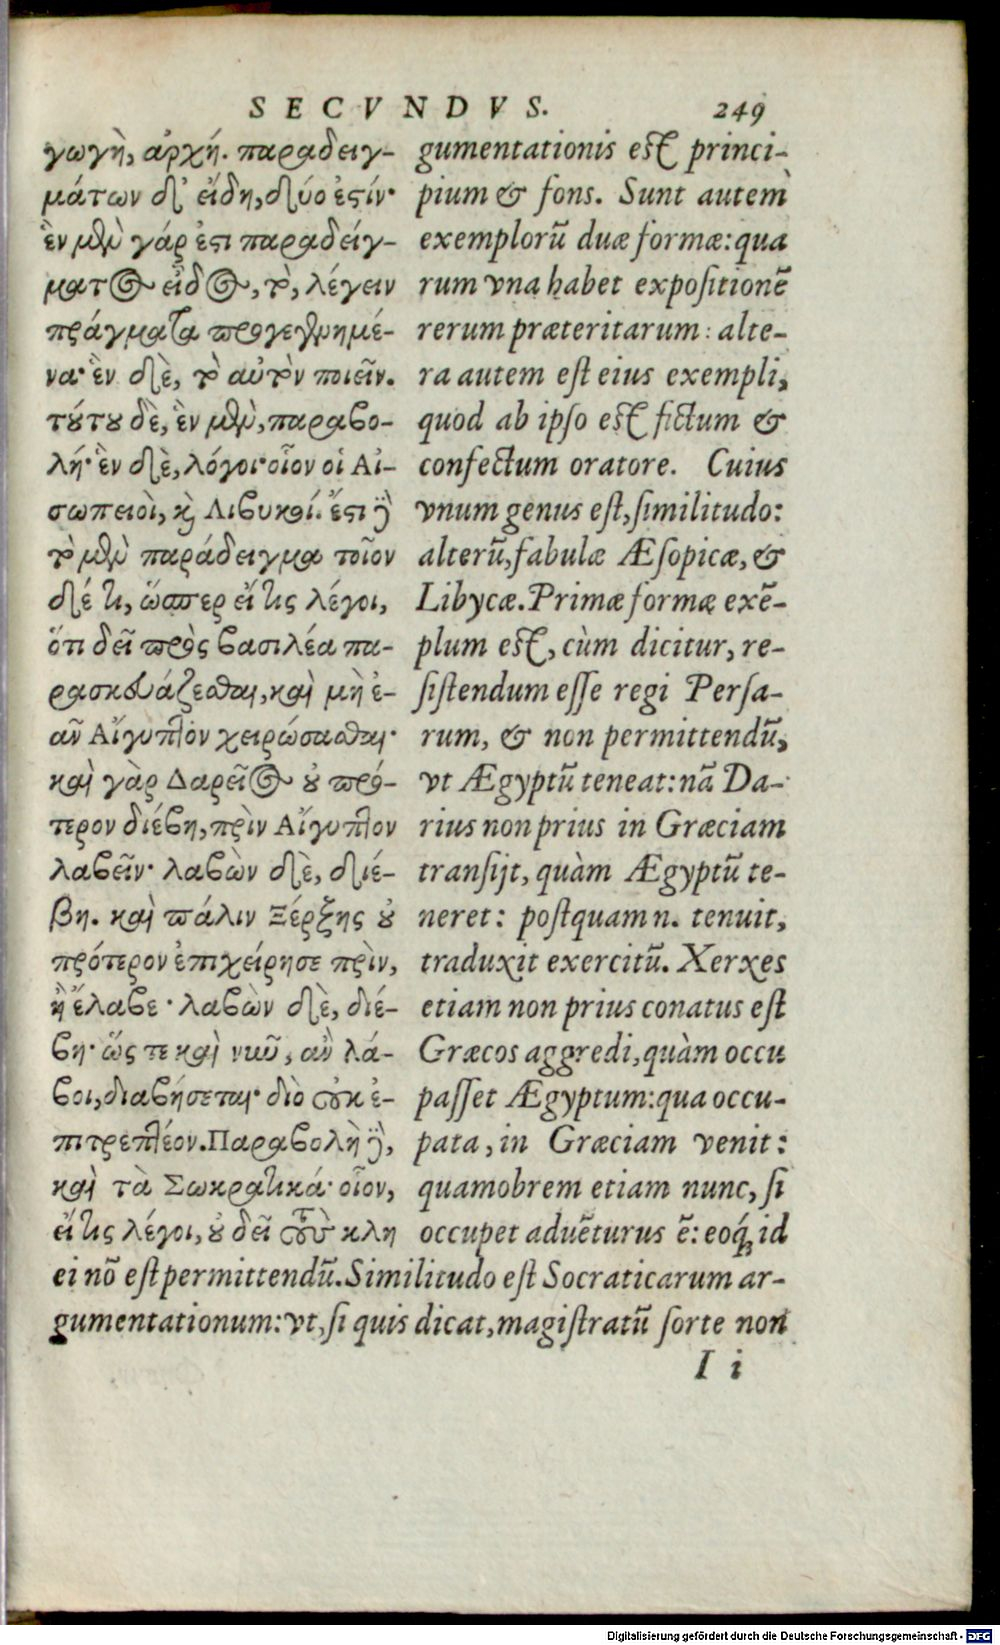 SECVNDVS. 249
γωγὴ, ἀρχή. παραδειγ-
μάτων δ' εἴδη, δύο ἐςίν·
ἓν μὲν γάρ ἐςι παραδείγ-
ματος εἶδος, τὸ, λέγειν
πράγματα προγεγενημέ-
να· ἓν δὲ, τὸ αὐτὸν ποιεῖν.
τούτου δὲ, ἓν μὲν, παραβο-
λή· ἓν δὲ, λόγοι· οἷον οἱ Αἰ-
σωπειοὶ, καὶ Λιβυκοί. ἔςι δὲ
τὸ μὲν παράδειγμα τοῖον
δέ τι, ὥσπερ εἴ τις λέγοι,
ὅτι δεῖ πρὸς βασιλέα πα-
ρασκευάζεσθαι, καὶ μὴ ἐ-
ᾶν Αἴγυπτον χειρώσασθαι·
καὶ γὰρ Δαρεῖος οὐ πρό-
τερον διέβη, πρὶν Αἴγυπτον
λαβεῖν· λαβὼν δὲ, διέ-
βη. καὶ πάλιν Ξέρξης οὐ
πρότερον ἐπιχείρησε πρὶν,
ἢ ἔλαβε· λαβὼν δὲ, διέ-
βη· ὥς τε καὶ νῦν, ἂν λά-
βοι, διαβήσεται· διὸ οὐκ ἐ-
πιτρεπτέον. Παραβολὴ δὲ,
καὶ τὰ Σωκρατικά· οἷον,
εἴ τις λέγοι, οὐ δεῖ τοὺς κλη
gumentationis est princi-
pium & fons. Sunt autem
exemplorũ duæ formæ: qua
rum vna habet expositionẽ
rerum præteritarum: alte-
ra autem est eius exempli,
quod ab ipso est fictum &
confectum oratore. Cuius
vnum genus est, similitudo:
alterũ, fabulæ Æsopicæ, &
Libycæ. Primæ formæ exẽ-
plum est, cùm dicitur, re-
sistendum esse regi Persa-
rum, & non permittendũ,
vt Ægyptũ teneat: nã Da-
rius non prius in Græciam
transijt, quàm Ægyptũ te-
neret: postquam n. tenuit,
traduxit exercitũ. Xerxes
etiam non prius conatus est
Græcos aggredi, quàm occu
passet Ægyptum: qua occu-
pata, in Græciam venit:
quamobrem etiam nunc, si
occupet aduẽturus ẽ: eoq́; id
ei nõ est permittendũ. Similitudo est Socraticarum ar-
gumentationum: vt, si quis dicat, magistratũ sorte non
I i
Digitalisierung gefördert durch die Deutsche Forschungsgemeinschaft - DFG